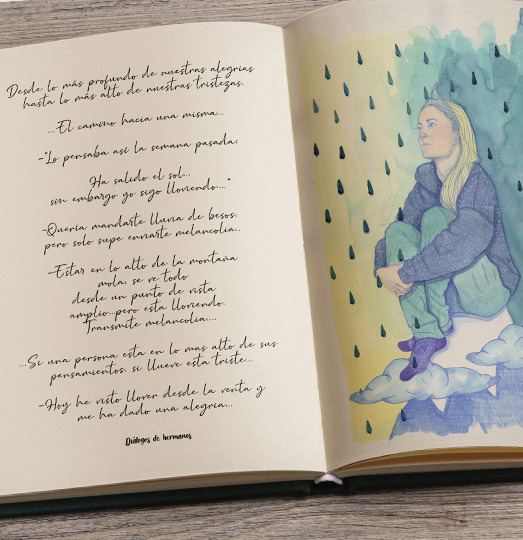 Desde lo más profundo de nuestras alegrías
hasta lo más alto de nuestras tristezas.
...El camino hacia una misma...
-"Lo pensaba así la semana pasada:
Ha salido el sol...
sin embargo yo sigo lloviendo..."
-Quería mandarte lluvia de besos,
pero solo supe enviarte melancolía..
-Estar en lo alto de la montaña
mola, se ve todo
desde un punto de vista
amplio..pero esta lloviendo.
Transmite melancolia....
...Si una persona esta en lo mas alto de sus
pensamientos, si llueve esta triste...
-Hoy he visto llover desde la venta y
me ha dado una alegría...
Diálogos de hermanos